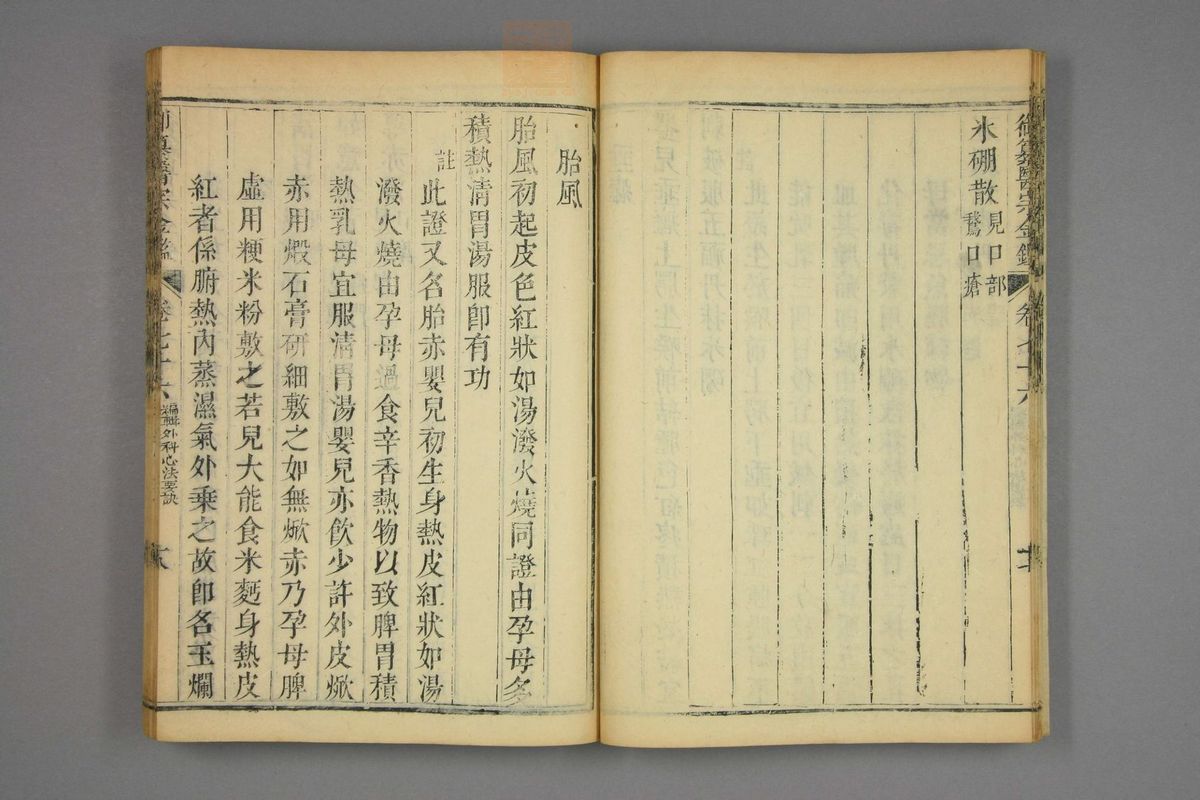 御纂醫宗金鑑 卷七十六
冰硼散見口部鵞口瘡
胎風
胎風初起皮色紅狀如湯潑火燒同證由孕母多
積熱清胃湯服即有功
註 此證又名胎赤嬰兒初生身熱皮紅狀如湯
潑火燒由孕母過食辛香熱物以致脾胃積
熱乳母宜服清胃湯嬰兒亦飲少許外皮焮
赤用煅石膏研細敷之如無焮赤乃孕母脾
虛用粳米粉敷之若兒大能食米麪身熱皮
紅者係腑熱內蒸濕氣外乘之故即名玉爛
御纂醫宗金鑑 卷七十六 編輯外科心法要訣